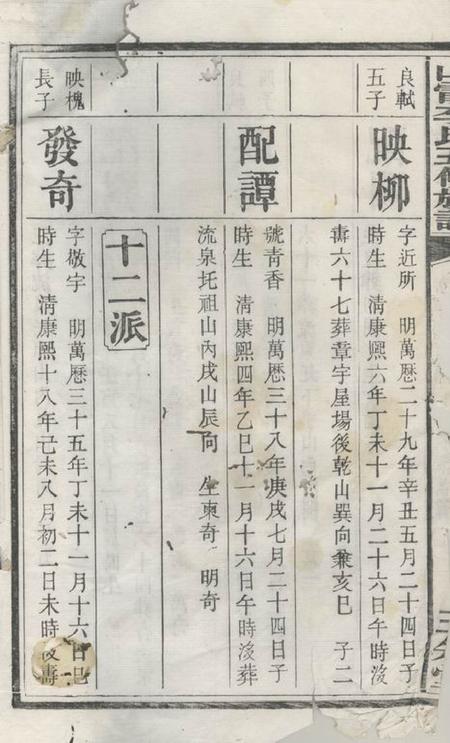 氏五修族譜
良軾
五子
映柳
字近所 明萬歷二十九年辛丑五月二十四日子
時生 清康熙六年丁未十一月二十六日午時沒
壽六十七葬章宇屋場後乾山巽向兼亥巳 子二
配譚
號青香 明萬歷三十八年庚戌七月二十四日子
時生 清康熙四年乙巳十一月十六日午時沒葬
流泉圫祖山內戌山辰向 生柬奇 明奇
十二派
映槐
長子
發奇
字敬宇 明萬歷三十五年丁未十一月十六日巳
時生 清康熙十八年己未八月初二日未時沒壽